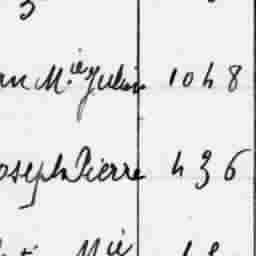 an M.ie Julien 1048
oseph Pierre 436
Mie